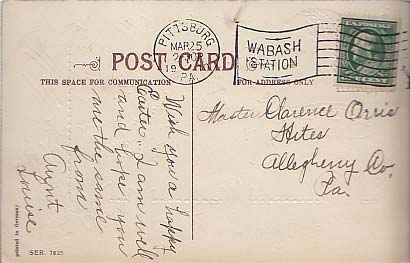 PITTSBURG
MAR 25
PA.
WABASH
STATION
POST CARD
THIS SPACE FOR COMMUNICATION
FOR ADDRESS ONLY
Wish you a happy
Easter. I am well
and hope you
are the same
from
Aunt
Louise
Master Clarence Orris
Hites
Allegheny Co.
Pa.
SER. 7625